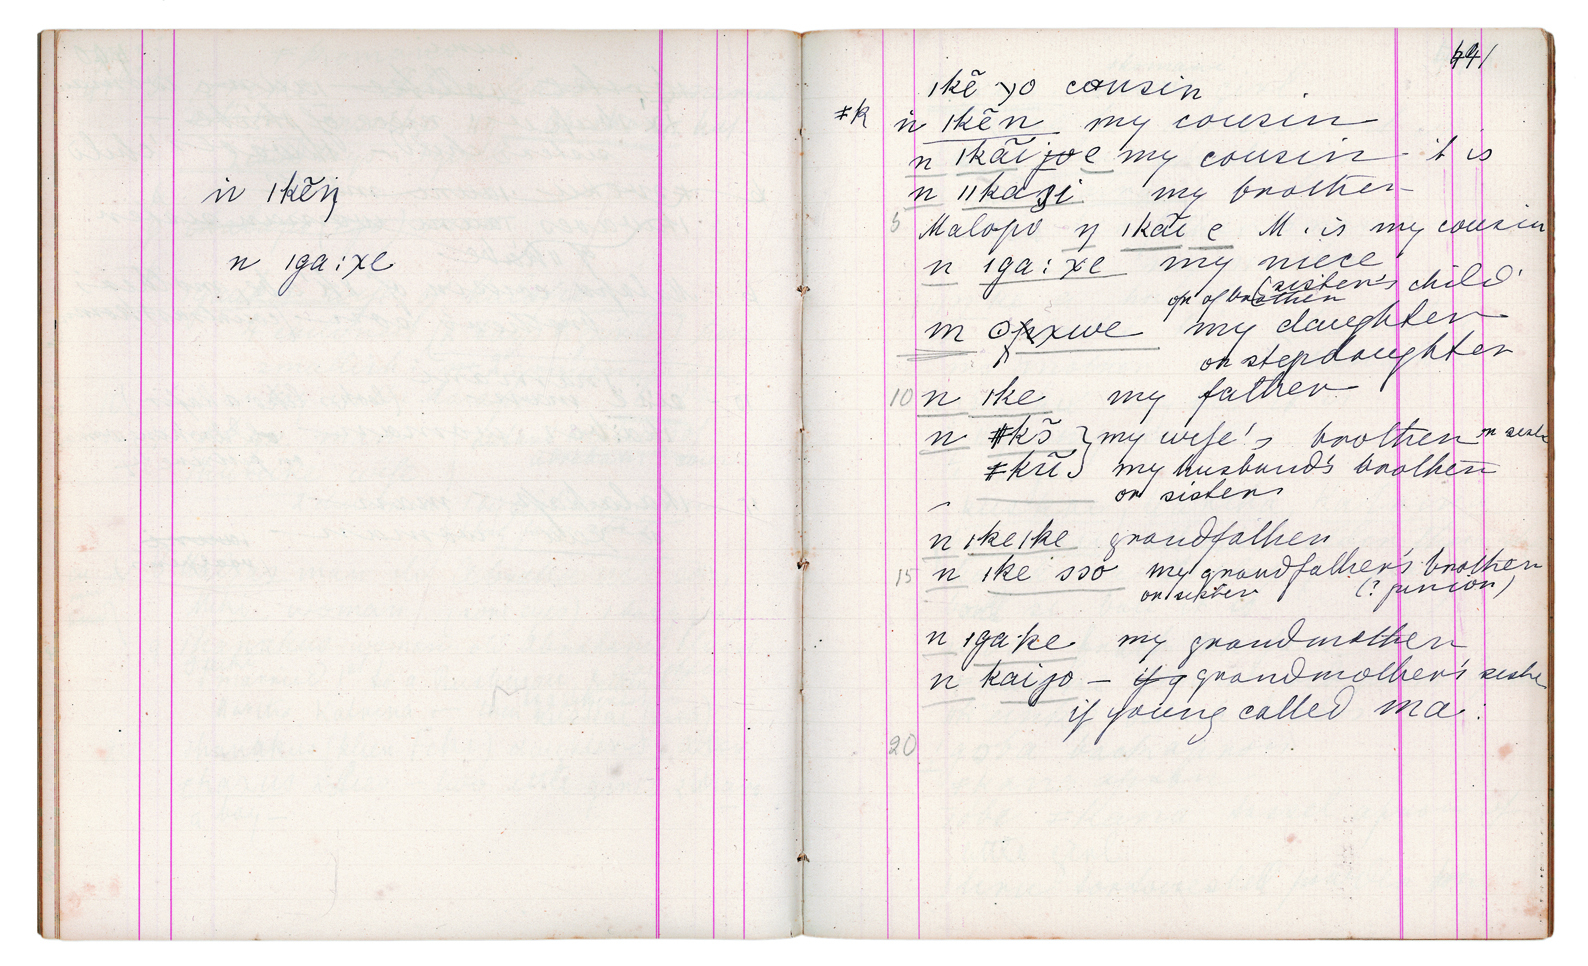 ṅ ıkẽŋ
n ıga:xe
441
ıkẽ yo cousin
ǂk
ṅ ıkẽn my cousin
n ıkãi joe my cousin it is
n ııkaʒi my brother
5
Malopo ŋ ıkãi e M. is my cousin
n ıga:xe my niece
(sister's child
or of brother
m opxwe my daughter
or stepdaughter
10 n ıke my father
n ǂkõ } my wife's brother or sister
ǂkũ } my husband's brother
or sister
n ıkeıke grandfather
15 n ıke sso my grandfather's brother
or sister (? junior)
n ıgake my grandmother
n kaijo – if g grandmother's sister
if young called ma.
20